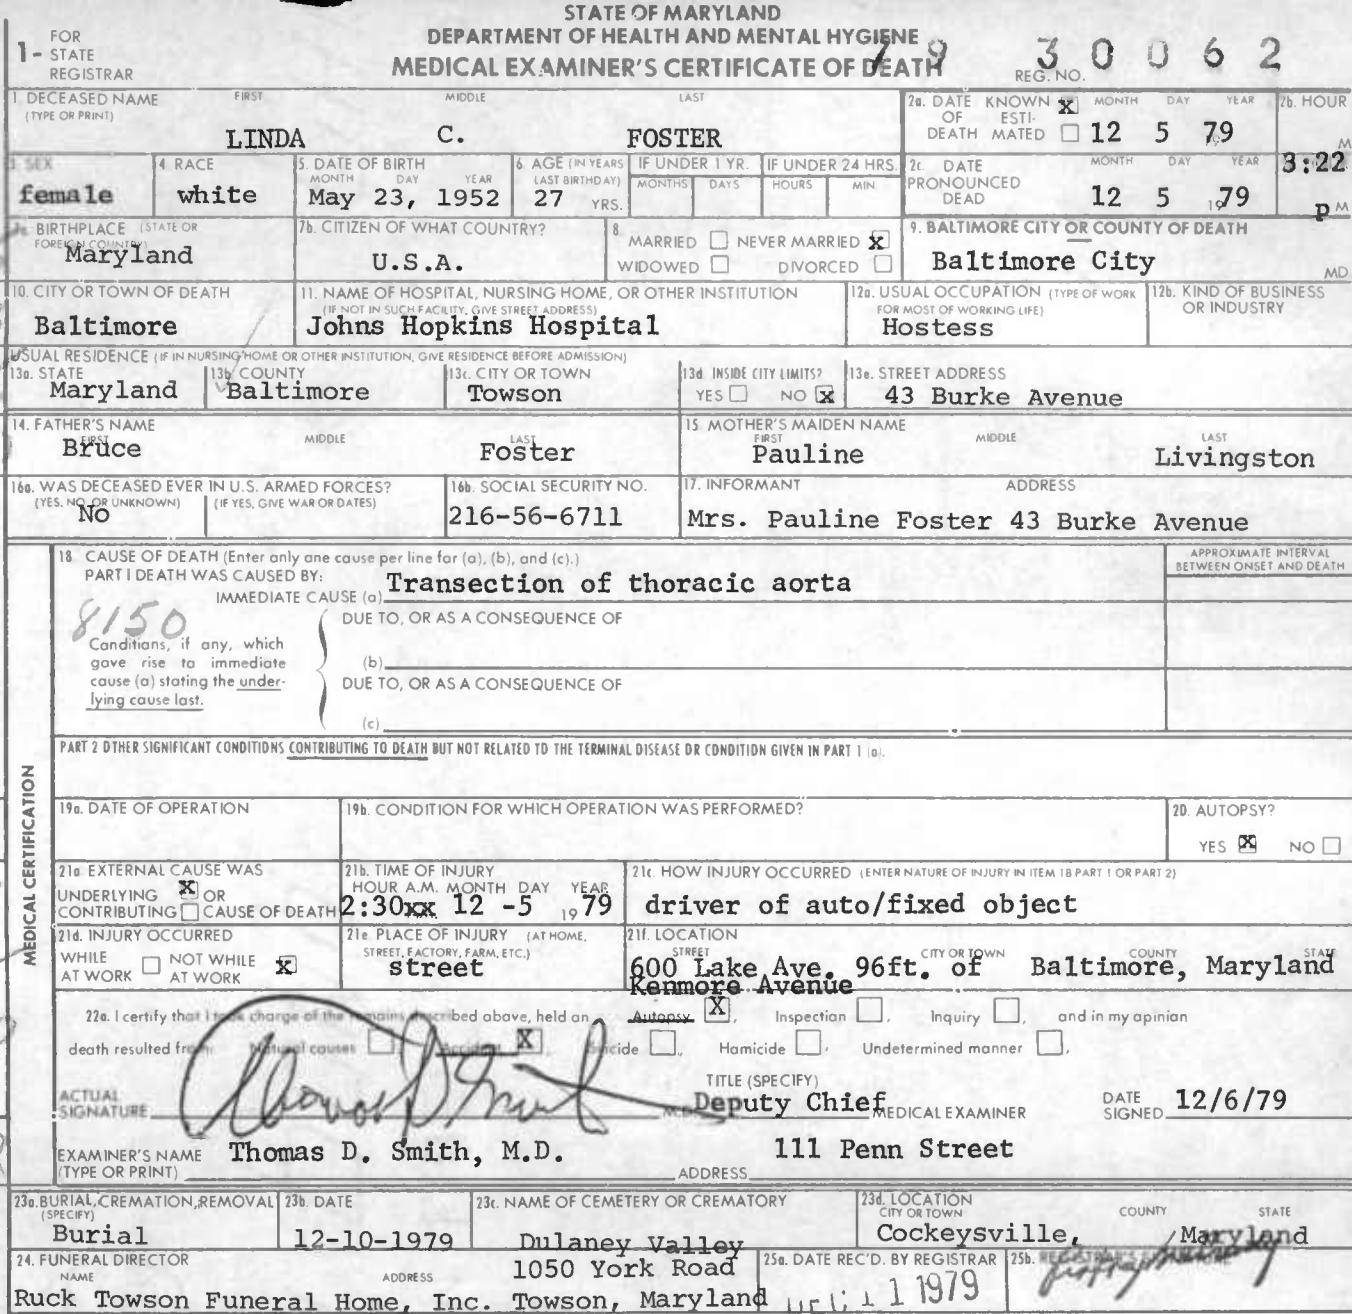 STATE OF MARYLAND
DEPARTMENT OF HEALTH AND MENTAL HYGIENE
MEDICAL EXAMINER'S CERTIFICATE OF DEATH
1- FOR STATE REGISTRAR
79 30062
REG. NO.
1. DECEASED NAME FIRST MIDDLE LAST
(TYPE OR PRINT)
LINDA C. FOSTER
2a. DATE OF DEATH KNOWN X ESTIMATED MONTH DAY YEAR
12 5 1979
2b. HOUR
M
3. SEX
female
4. RACE
white
5. DATE OF BIRTH
MONTH DAY YEAR
May 23, 1952
6. AGE (IN YEARS LAST BIRTHDAY)
27 YRS.
IF UNDER 1 YR. IF UNDER 24 HRS.
MONTHS DAYS HOURS MIN
2c. DATE PRONOUNCED DEAD MONTH DAY YEAR
12 5 1979
3:22
P M
BIRTHPLACE (STATE OR FOREIGN COUNTRY)
Maryland
7b. CITIZEN OF WHAT COUNTRY?
U.S.A.
8. MARRIED NEVER MARRIED X
WIDOWED DIVORCED
9. BALTIMORE CITY OR COUNTY OF DEATH
Baltimore City MD
10. CITY OR TOWN OF DEATH
Baltimore
11. NAME OF HOSPITAL, NURSING HOME, OR OTHER INSTITUTION
(IF NOT IN SUCH FACILITY, GIVE STREET ADDRESS)
Johns Hopkins Hospital
12a. USUAL OCCUPATION (TYPE OF WORK
FOR MOST OF WORKING LIFE)
Hostess
12b. KIND OF BUSINESS
OR INDUSTRY
USUAL RESIDENCE (IF IN NURSING HOME OR OTHER INSTITUTION, GIVE RESIDENCE BEFORE ADMISSION)
13a. STATE
Maryland
13b. COUNTY
Baltimore
13c. CITY OR TOWN
Towson
13d INSIDE CITY LIMITS?
YES NO X
13e. STREET ADDRESS
43 Burke Avenue
14. FATHER'S NAME
FIRST MIDDLE LAST
Bruce Foster
15 MOTHER'S MAIDEN NAME
FIRST MIDDLE LAST
Pauline Livingston
16a. WAS DECEASED EVER IN U.S. ARMED FORCES?
(YES, NO, OR UNKNOWN) (IF YES, GIVE WAR OR DATES)
No
16b. SOCIAL SECURITY NO.
216-56-6711
17. INFORMANT ADDRESS
Mrs. Pauline Foster 43 Burke Avenue
MEDICAL CERTIFICATION
18 CAUSE OF DEATH (Enter only one cause per line for (a), (b), and (c).)
PART I DEATH WAS CAUSED BY:
IMMEDIATE CAUSE (a) Transection of thoracic aorta
APPROXIMATE INTERVAL
BETWEEN ONSET AND DEATH
8150
DUE TO, OR AS A CONSEQUENCE OF
Conditions, if any, which
gave rise to immediate
cause (a) stating the under-
lying cause last.
(b)
DUE TO, OR AS A CONSEQUENCE OF
(c)
PART 2 OTHER SIGNIFICANT CONDITIONS CONTRIBUTING TO DEATH BUT NOT RELATED TO THE TERMINAL DISEASE OR CONDITION GIVEN IN PART 1 (a).
19a. DATE OF OPERATION
19b. CONDITION FOR WHICH OPERATION WAS PERFORMED?
20. AUTOPSY?
YES X NO
21a EXTERNAL CAUSE WAS
UNDERLYING X OR
CONTRIBUTING CAUSE OF DEATH
21b. TIME OF INJURY
HOUR A.M. MONTH DAY YEAR
2:30xx 12 -5 1979
21c. HOW INJURY OCCURRED (ENTER NATURE OF INJURY IN ITEM 18 PART 1 OR PART 2)
driver of auto/fixed object
21d. INJURY OCCURRED
WHILE AT WORK NOT WHILE AT WORK X
21e PLACE OF INJURY (AT HOME,
STREET, FACTORY, FARM, ETC.)
street
21f. LOCATION
STREET CITY OR TOWN COUNTY STATE
600 Lake Ave. 96ft. of Baltimore, Maryland
Kenmore Avenue
22a. I certify that I took charge of the remains described above, held an Autopsy X, Inspection, Inquiry, and in my opinion
death resulted from: Natural causes, Accident X, Suicide, Homicide, Undetermined manner,
ACTUAL
SIGNATURE
Thomas D. Smith
M.D.
TITLE (SPECIFY)
Deputy Chief MEDICAL EXAMINER
DATE
SIGNED 12/6/79
EXAMINER'S NAME
(TYPE OR PRINT) Thomas D. Smith, M.D.
ADDRESS 111 Penn Street
23a. BURIAL, CREMATION, REMOVAL
(SPECIFY)
Burial
23b. DATE
12-10-1979
23c. NAME OF CEMETERY OR CREMATORY
Dulaney Valley
23d. LOCATION
CITY OR TOWN COUNTY STATE
Cockeysville, Maryland
24. FUNERAL DIRECTOR
NAME ADDRESS
1050 York Road
Ruck Towson Funeral Home, Inc. Towson, Maryland
25a. DATE REC'D. BY REGISTRAR
DEC 11 1979
25b. REGISTRAR'S SIGNATURE